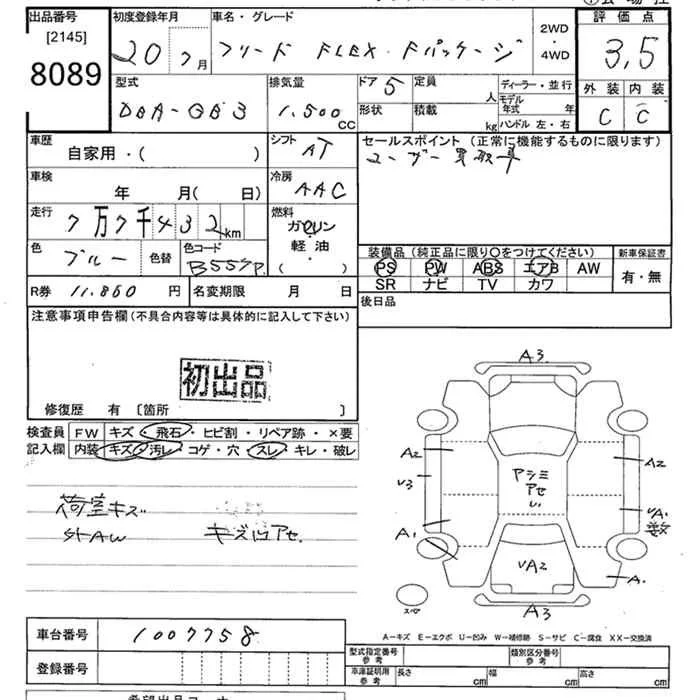 出品番号 初度登録年月 車名・グレード 2WD・4WD 評価点
[2145]
8089
20 7月 フリード FLEX・Fパッケージ 3,5
型式 排気量 ドア 5 定員 人 ディーラー・並行 外装 内装
DBA-GB3 1.500 CC 形状 積載 kg モデル年式 年 C C
ハンドル 左・右
車歴 シフト AT セールスポイント (正常に機能するものに限ります)
自家用・( ) ユーザー買取車
車検 冷房 AAC
年 月( 日)
走行 燃料
7万7千432km ガソリン
色 ブルー 色替 色コード B557P 軽油・( )
装備品 (純正品に限り〇をつけてください) 新車保証書
PS PW ABS エアB AW 有・無
SR ナビ TV カワ
R券 11.860 円 名変期限 月 日 後日品
注意事項申告欄 (不具合内容等は具体的に記入して下さい)
初出品
修復歴 有 〔箇所 〕
検査員記入欄 FW キズ・飛石・ヒビ割・リペア跡・×要
内装 キズ・汚レ・コゲ・穴・スレ・キレ・破レ
荷室キズ
StAW キズ凹アセ
A3
A2 A2
U3 アシミ
アセ
A1 UA1
数
UA2
A.
スペア A3
A―キズ E―エクボ U―凹み W―補修跡 S―サビ C―腐食 XX―交換済
車台番号 1007758
登録番号
型式指定番号 参考 類別区分番号 参考
車庫証明用 参考 長さ cm 幅 cm 高さ cm